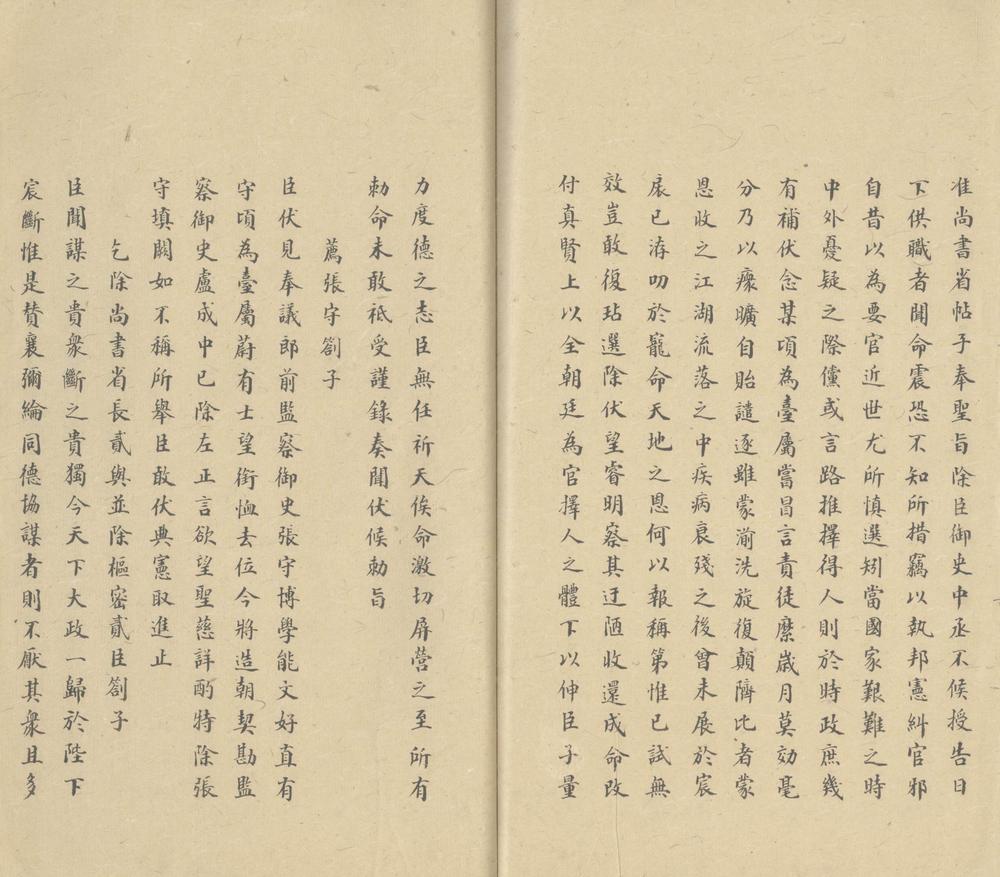 准尚書省帖子奉聖旨除臣御史中丞不候授告日
下供職者聞命震恐不知所措竊以執邦憲糾官邪
自昔以為要官近世尤所慎選矧當國家艱難之時
中外憂疑之際儻或言路推擇得人則於時政庶幾
有補伏念某頃為臺屬當冒言責徒縻歲月莫効毫
分乃以瘝曠自貽譴逐雖蒙湔洗旋復顛隮比者蒙
恩收之江湖流落之中疾病衰殘之後曾未展於宸
扆已洊叨於寵命天地之恩何以報稱第惟已試無
效豈敢復玷選除伏望睿明察其迂陋收還成命改
付真賢上以全朝廷為官擇人之體下以伸臣子量
力度德之志臣無任祈天俟命激切屏營之至所有
勑命未敢祗受謹錄奏聞伏候勑旨
薦張守劄子
臣伏見奉議郎前監察御史張守博學能文好直有
守頃為臺屬蔚有士望銜恤去位今將造朝契勘監
察御史盧成中已除左正言欲望聖慈詳酌特除張
守填闕如不稱所舉臣敢伏典憲取進止
乞除尚書省長貳與並除樞密貳臣劄子
臣聞謀之貴衆斷之貴獨今天下大政一歸於陛下
宸斷惟是贊襄彌綸同德協謀者則不厭其衆且多